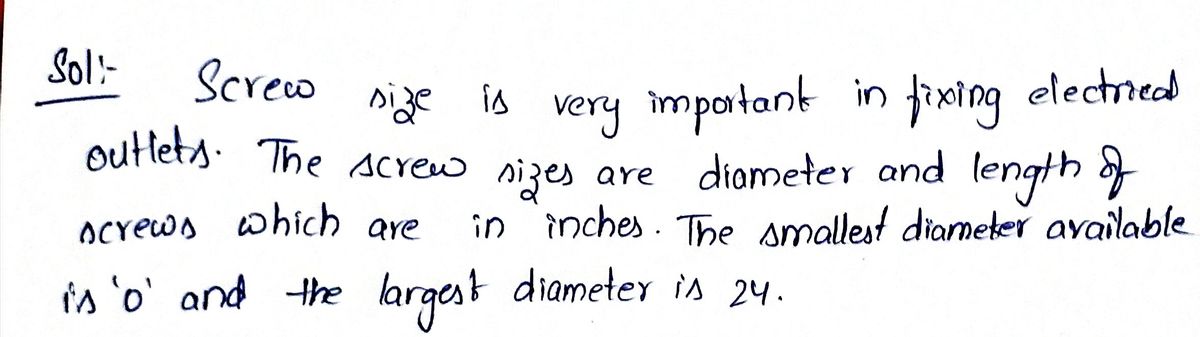 Sol:- Screw size is very important in fixing electrical
outlets. The screw sizes are diameter and length of
screws which are in inches. The smallest diameter available
is 'o' and the largest diameter is 24.